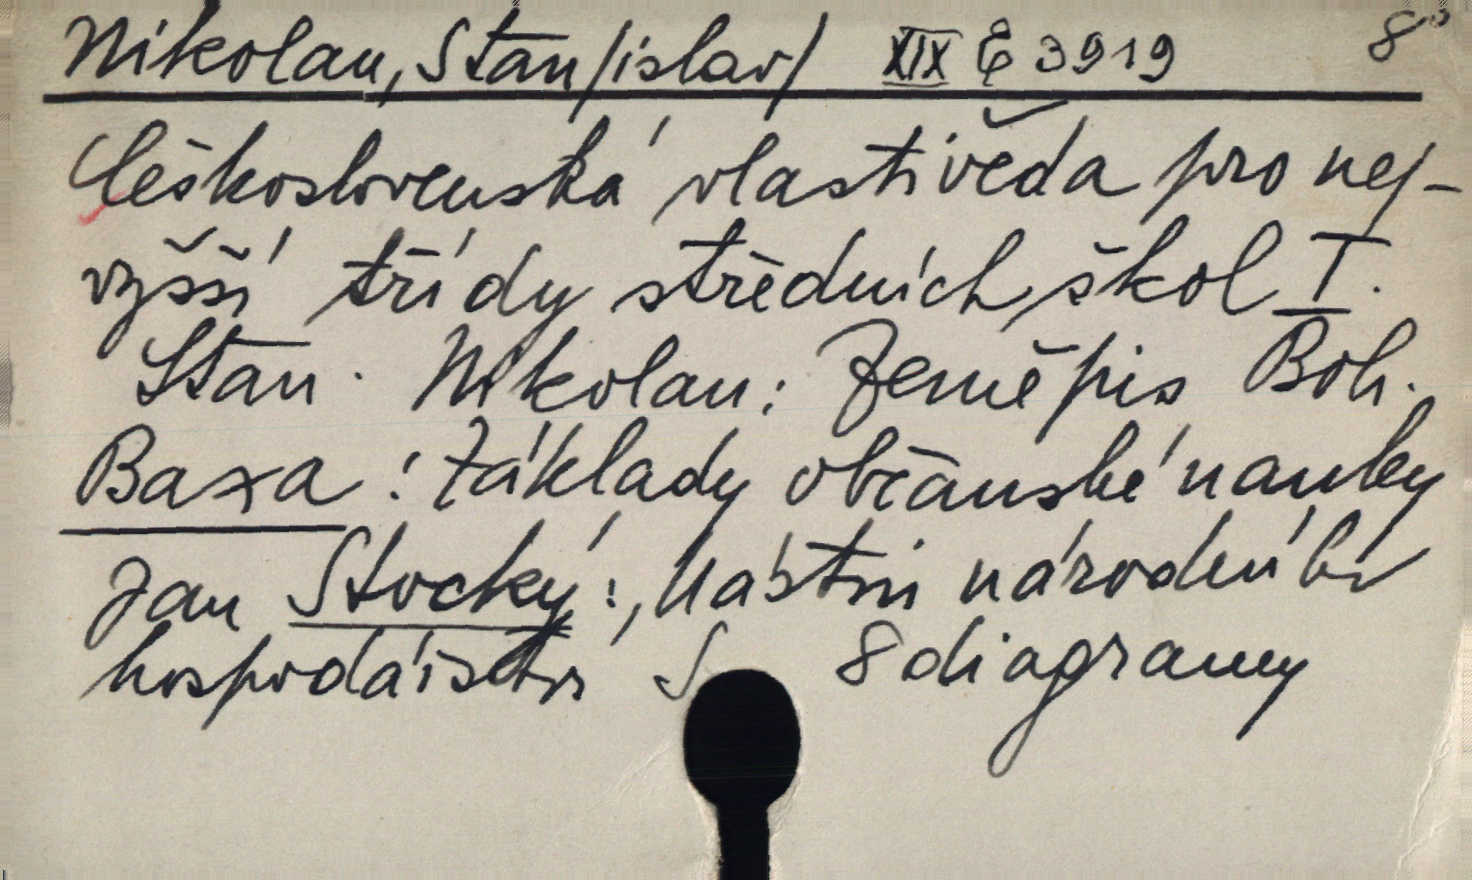 Nikolau, Stan/islav/ XIX E 3919 8°
Československá vlastivěda pro nej-
vyšší třídy středních škol I.
Stan. Nikolau: Zeměpis Boh.
Baxa: Základy občanské nauky
Jan Stocký: Nástin národního
hospodářství S 8 diagramy